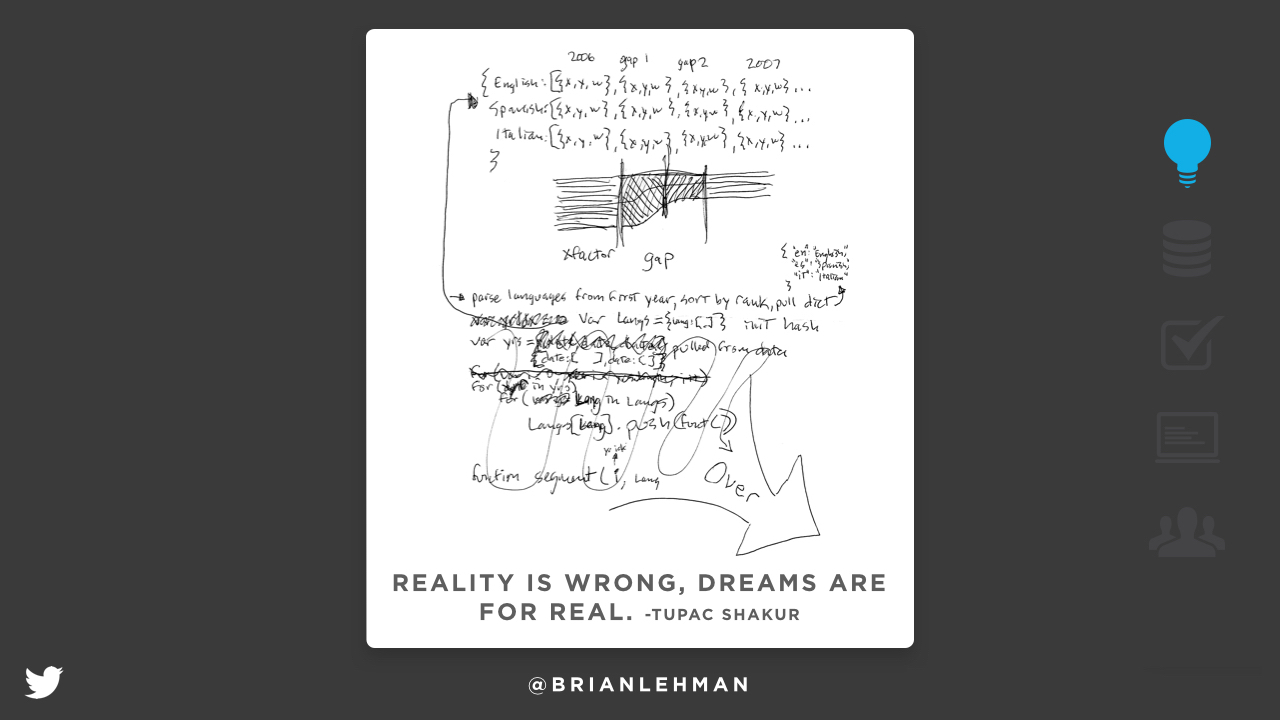 2006 gap 1 gap 2 2007
{ English: [{x,y,w}, {x,y,w}, {x,y,w}, {x,y,w} ...
Spanish: [{x,y,w}, {x,y,w}, {x,y,w}, {x,y,w} ...
Italian: [{x,y,w}, {x,y,w}, {x,y,w}, {x,y,w} ...
}
xfactor gap
{ "en": "English",
"es": "Spanish",
"it": "Italian"
}
parse languages from first year, sort by rank, pull dict
var langs = {lang: [,]} init hash
var yrs = pulled from data
[{date: [ ], date: [ ]}]
for ( in yrs)
for ( lang in langs)
Langs[lang].push(funct())
yr idx
function segment( , lang
Over
REALITY IS WRONG, DREAMS ARE
FOR REAL. -TUPAC SHAKUR
@BRIANLEHMAN